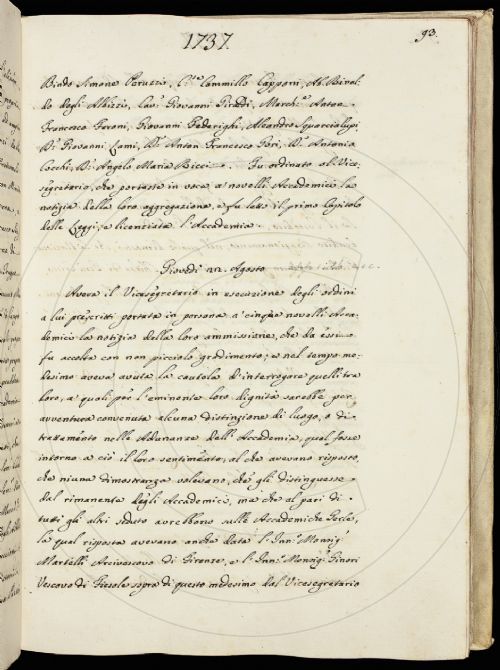 1737.
93.
Bindo Simone Peruzzi, C.te Cammillo Capponi, Ab. Rinal-
do degli Albizzi, Cav. Giovanni Giraldi, March.e Anton
Francesco Foroni, Giovanni Federighi, Aleandro Squarcialupi
D.r Giovanni Lami, D.r Anton Francesco Gori, D.r Antonio
Cocchi, D.r Angelo Maria Ricci. Fu ordinato al Vice-
segretario, che portasse in voce a' novelli Accademici la
notizia della loro aggregazione, e fu letto il primo Capitolo
delle Leggi, e licenziata l'Accademia.
Giovedì 22. Agosto
Aveva il Vicesegretario in esecuzione degli ordini
a lui prescritti portata in persona a' cinque novelli Acca-
demici la notizia della loro ammissione, che da essi
fu accolta con non picciolo gradimento; e nel tempo me-
desimo aveva avuta la cautela d'interrogare quelli tra
loro, a quali per l'eminente loro dignità sarebbe per
avventura convenuta alcuna distinzione di luogo, o di
trattamento nelle Adunanze dell'Accademia, qual fosse
intorno a ciò il loro sentimento; al che avevano risposto,
che niuna dimostranza volevano, che gli distinguesse
dal rimanente degli Accademici, ma che al pari di
tutti gli altri seduto avrebbono sulle Accademiche Gerle,
la qual risposta avevano anche data l'Ill.mo Monsig.r
Martelli Arcivescovo di Firenze, e l'Ill.mo Monsig.r Ginori
Vescovo di Fiesole sopra di questo medesimo dal Vicesegretario